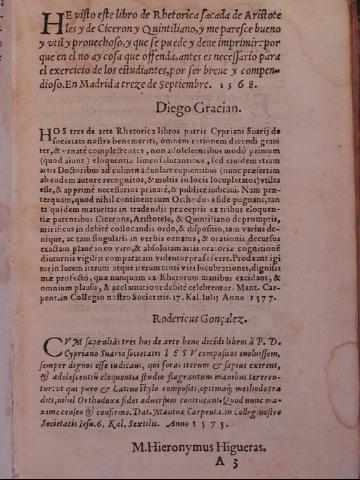 HE visto este libro de Rhetorica sacada de Aristote
les y de Ciceron y Quintiliano, y me paresce bueno
y vtil y prouechoso, y que se puede y deue imprimir: por
que en el no ay cosa que offenda, antes es necessario para
el exercicio de los estudiantes, por ser breue y compen-
dioso. En Madrid a treze de Septiembre. 1568.
Diego Gracian.
HOS tres de arte Rhetorica libros patris Cypriani Suarij de
societate nostra benemeriti, omnem rationem dicendi grani
ter, & ornatè complectentes, non adolescentibus modò primum
(quod aiunt) eloquentiæ limen salutantibus, sed eiusdem etiam
artis Doctoribus ad culmen aduolare cupientibus (nunc præsertim
ab eodem autore recognitos, & multis in locis locupletatos) vtiles
esse, & apprimè necessarios priuatè, & publicè iudicaui. Nam præ-
terquam, quod nihil continent cum Orthodoxa fide pugnans, tan
ta quidem maturitas in tradendis præceptis ex tribus eloquen-
tiæ parentibus Cicerone, Aristotele, & Quintiliano depromptis,
mirificus in debitè collocandis ordo, & dispositio, tam varius de-
nique, ac tam singularis in verbis ornatus, & orationis decursus
exactam planè in eo viro, & absolutam artis oratoriæ cognitionem
diuturnis vigilijs comparatam videntur præseferre. Prodeant igi
tur in lucem iterum atque iterum tanti viri lucubrationes, dignissi
mæ profectò, quæ nunquam ex Rhetorum manibus excidant, &
omnium plausu, & acclamatione debitè celebrentur. Mant. Car-
pent. in Collegio nostro Societatis. 17. Kal. Iulij Anno 1577.
Rodericus Gonçalez.
CVM sæpe aliàs tres hos de arte bene dicēdi libros à P. D.
Cypriano Suario societatis IESV compositos euoluissem,
semper dignos esse iudicaui, qui foras iterum & sæpius exirent,
& adolescentiū eloquentiæ studio flagrantium manibus tereren-
tur: vt qui puro & Latino stylo compositi, optimaq; methodo tra
diti, nihil Orthodoxæ fidei aduersum contineant. Quod nunc ma-
ximè censeo & confirmo. Dat. Mantuæ Carpenta. in Colleg. nostro
Societatis Iesu. 6. Kal. Sextilis. Anno 1575.
M. Hieronymus Higueras.
A 3